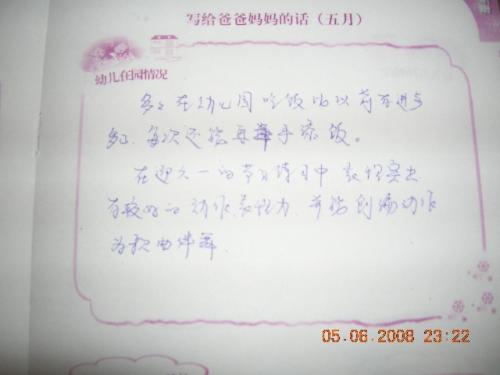 写给爸爸妈妈的话（五月）
幼儿在园情况
多多在幼儿园吃饭比以前有进步
多了，每次还能再举手添饭。
在迎六一的节目练习中表现突出
有较好的动作表现力，并能创编动作
为歌曲伴舞
05.06.2008 23:22